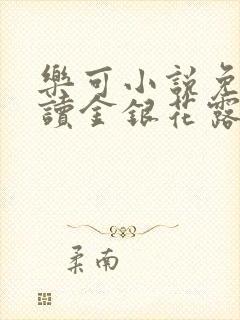 樂可小說免
讀金銀花露
柔南